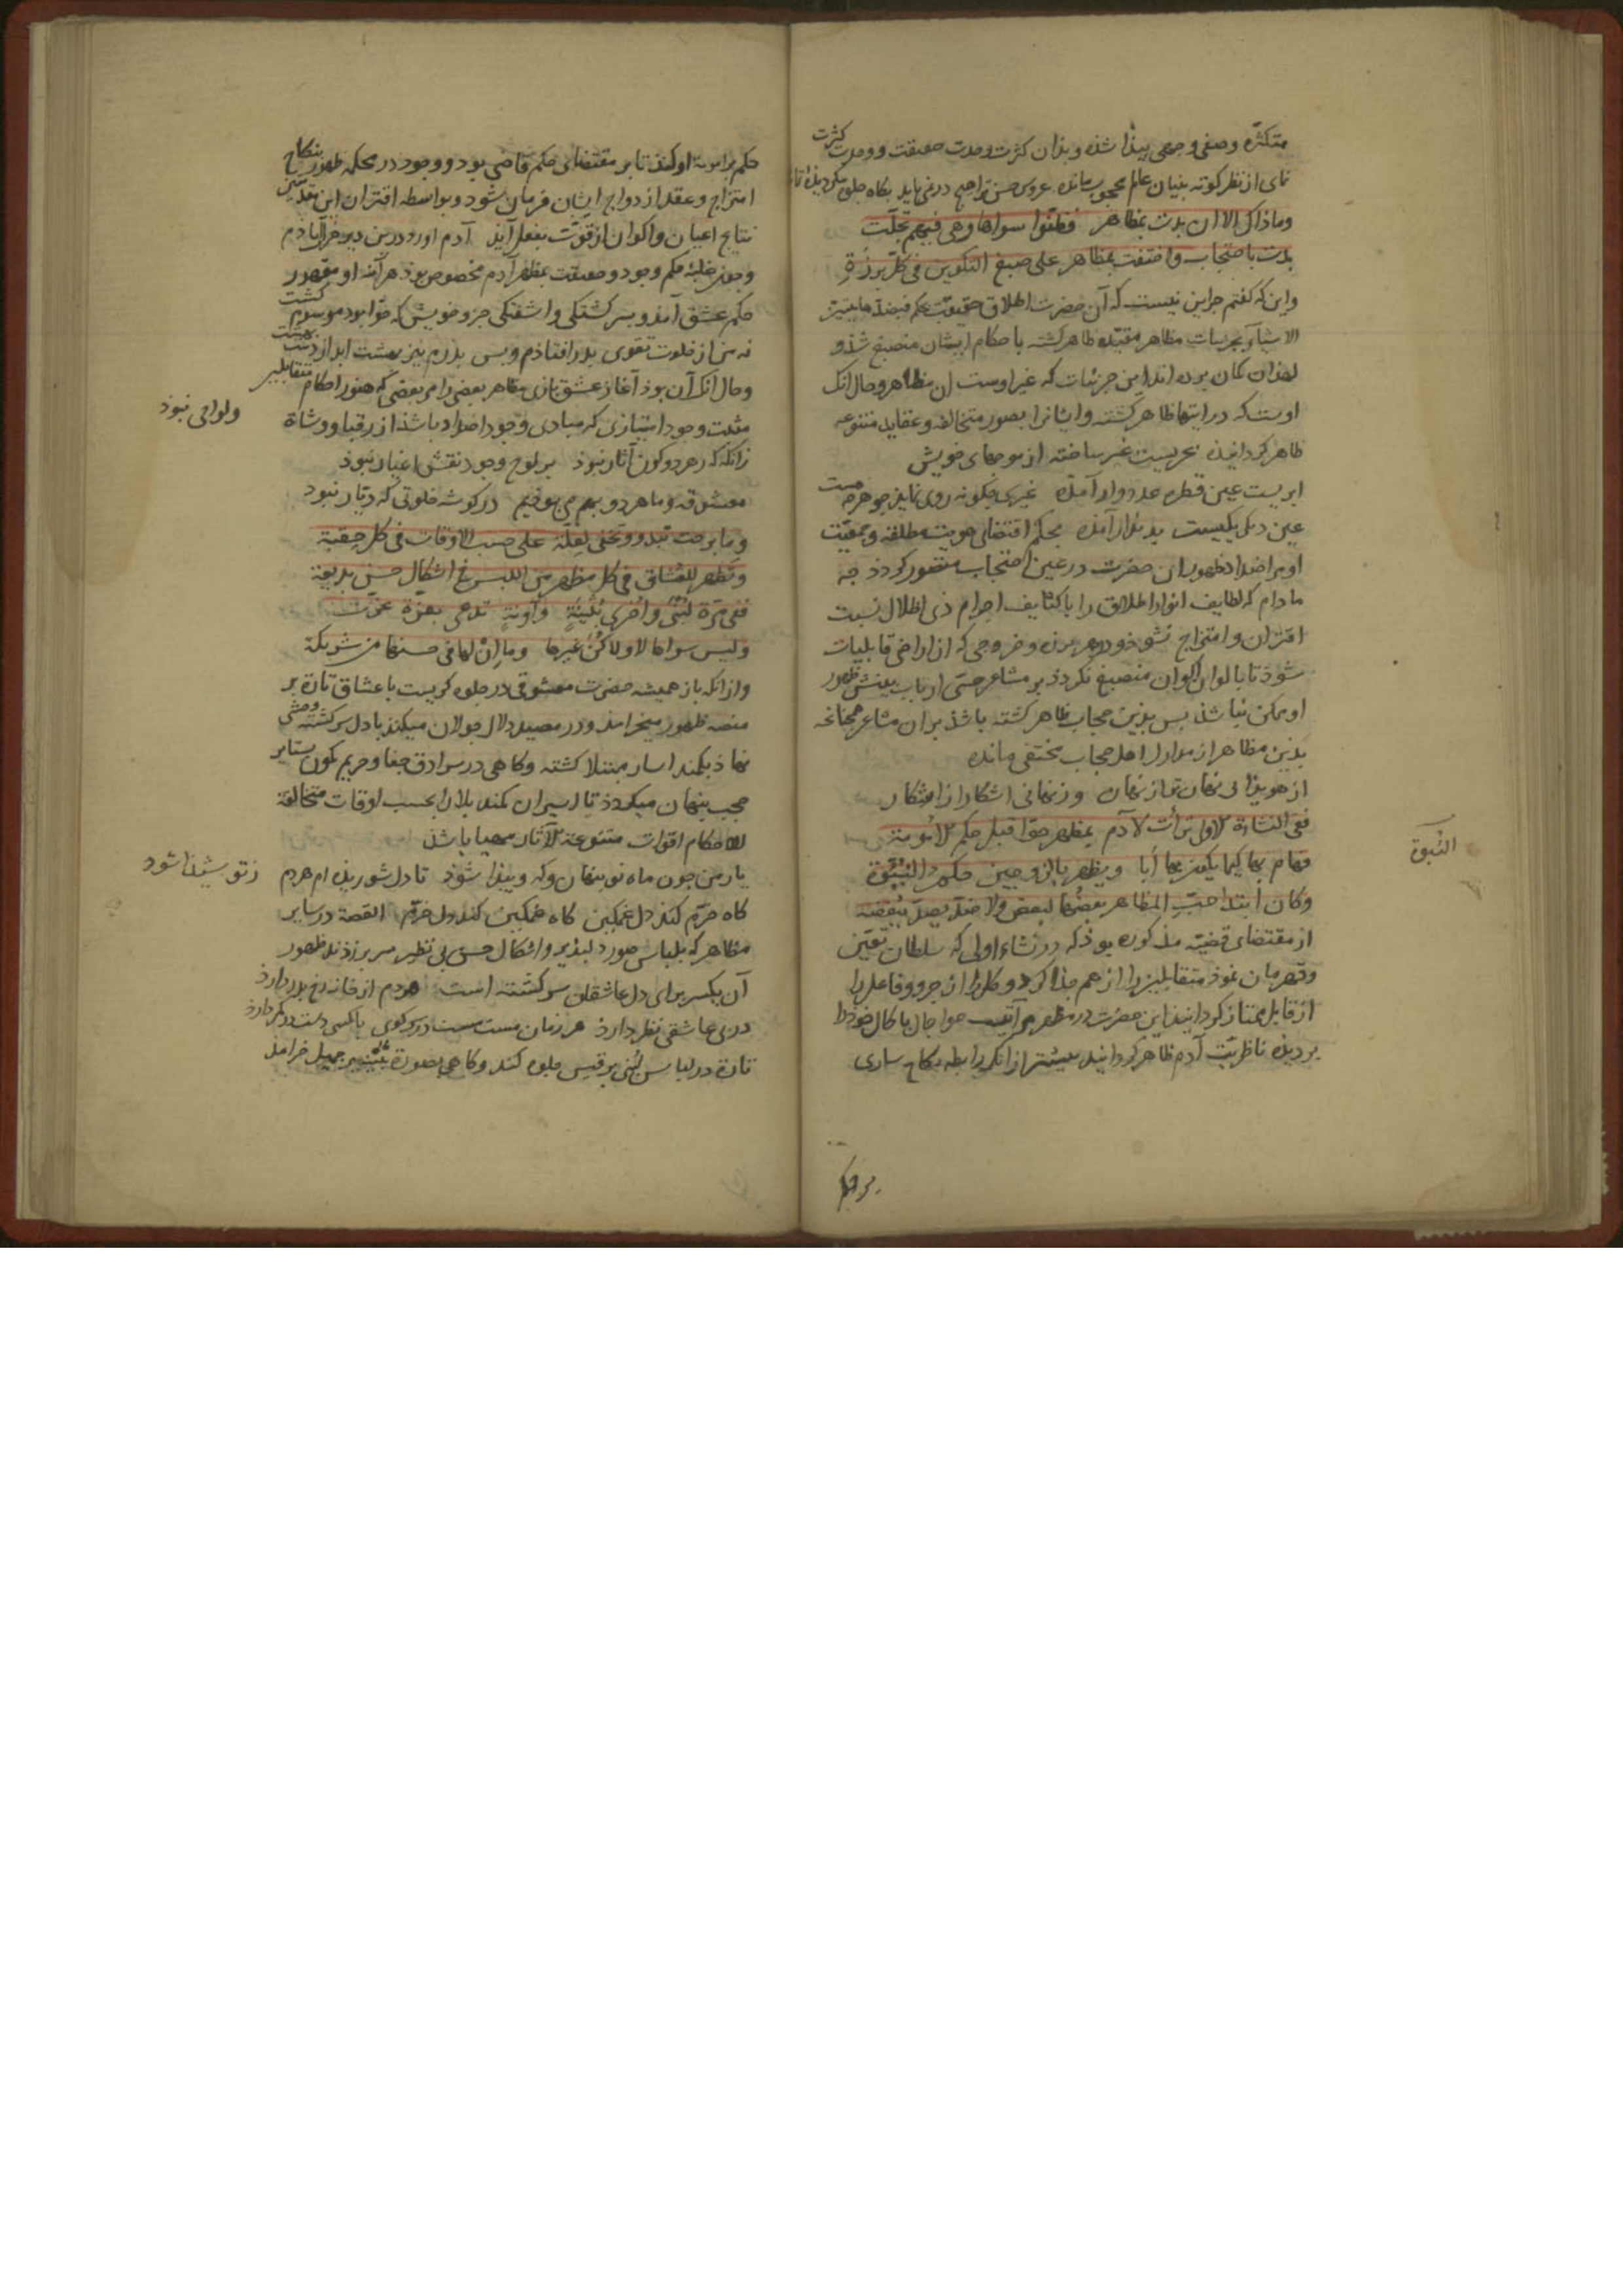 متكثره وصفی و جمعی پیذا شذه و بذان كثرت وحدت حقیقت و وحدت كثرت
نمای از نظر كوته بینان عالم محجوب مانده عروس حسن تو اصبح درنمی یابد بكاه جلوه
وماذاك الا ان بدت بمظاهر فظنّوا سواها وهی فیهم تجلّت
بدت باحتجاب واختفت بمظاهر علی صبغ التلوین فی كل برزة
واین كه كفتم جز این نیست كه آن حضرت اطلاق حقیقت بحكم
الاشیاء بجزییات مظاهر مقیّده ظاهر كشته باحكام ایشان منصبغ شذ و
لهذا كمان برده اند این جزئیات كه غیر اوست ان مظاهر وحال انك
اوست كه در اینها ظاهر كشته وایشانرا بصور متخالفه وعقاید متنوعه
ظاهر كردانیده بحریست غیر ساخته از موجهای خویش
ابریست عین قطره عدد وار آمده غیری چكونه روی نماید چو هرچه هست
عین دكر یكیست پدیدار آمده بحكم اقتضای هویت مطلقه وجمعیّت
او مر اضداد را ظهور ان حضرت در عین احتجاب متصور كردد چه
مادام كه لطایف انوار اطلاق را با كثایف اجرام ذی اظلال نسبت
اقتران وامتزاج نشود و در هر برزه وخروجی كه از اراضی قابلیات
شوذ تا بالوان اكوان منصبغ نكردذ بر مشاعر حسّی ارباب بینش ظهور
او ممكن نباشذ پس بذین حجاب ظاهر كشته باشذ بر ان مشاعر همچنانكه
بذین مظاهر از مدارك اهل حجاب مختفی مانده
از هویذایی نهان تو از نهان وز نهانی اشكارا از اشكار
ففی النشأة الاولی ترأت لآدم بمظهر حوّا قبل حكم الامومة
فهام بها كیما یكون بها أبا ویظهر بالزوجین حكم البنوّة
وكان ابتدا حبّ المظاهر بعضها لبعض ولا ضدّ یصدّ ببغضة
از مقتضای قضیّه مذكوره بوذ كه در نشاء اولی كه سلطان تعیّن
وقهرمان نموذ متقابلین را از هم جذا كرد و كل را از جزو و فاعل را
از قابل ممتاز كردانیذ این حضرت در مظهر مرآتیت حوا جمال با كمال خوذ را
بر دیده ناظریّت آدم ظاهر كردانید پیشتر از انكه رابطه نكاح ساری
بر حكم
البنوة
حكم برامومة او كند تا بر مقتضای حكم قاضی بود و وجود در محكمه ظهور بنكاح
امتزاج وعقد ازدواج ایشان فرمان شود و بواسطه اقتران این
نتایج اعیان واكوان از قوّت بفعل آیذ آدم اورد درین دیر خراب آبادم
وچون غلبه حكم وجود وحقیقت بمظهر آدم مخصوص بوذ هر آینه او مقهور
حكم عشق آمذ و بسر كشتكی واشفتكی جزو خویش كه حوا بود موسوم كشت
نه من از خلوت تقوی بدر افتاذم وبس پذرم نیز بهشت ابد از دست بهشت
وحال انك آن بوذ آغاز عشق بازی مظاهر بعضی را مر بعضی كه هنوز احكام متقابلین
مثبت وجود امتیازی كه مبادی وجود اضداد باشذ از رقبا ووشاة
ولواحی نبوذ
زانكه كه ز هر دو كون آثار نبوذ بر لوح وجود نقش اغیار نبوذ
معشوقه وما هر دو بهم می بوذیم در كوشه خلوتی كه دیّار نبود
وما برحت تبدو وتخفی لعلّة علی حسب الاوقات فی كل حقبة
وتظهر للعشّاق فی كل مظهر من اللبس فی اشكال حسن بدیعة
ففی مرّة لبنی واخری بثینة وآونة تدعی بعزّة عزّت
ولیس سواها لا ولا كنّ غیرها وما ان لها فی حسنها من شریكة
واز انكه باز همیشه حضرت معشوقی در جلوه كریست با عشاق تارة بر
منصه ظهور میخرامذ ودر مصید دلال جولان میكند با دل سركشته وحشی
نهاذ بكمند اسار مبتلا كشته وكاهی در سرادق جفا وحریم كمون بستایر
حجب پنهان میكردذ تا اسیران كمند بلا را بحسب اوقات متخالفة
الاحكام اقوات متنوعة الآثار مهیا باشذ
یار من چون ماه نو پنهان وكه پیذا شوذ تا دل شوریذه ام هردم
ز تو شیذا شود
كاه خرّم كند دل غمكین كاه غمكین كند دل خرّم القصه در سایر
مظاهر كه بلباس صور دلپذیر واشكال حسن بی نظیر سر بر زذند ظهور
آن یكسر برای دل عاشقان سركشته است هردم از خانه رخ بدر دارد
در پی عاشقی نظر دارذ هر زمان مست مست در سر كوی با كسی دست در كمر دارذ
تارة در لباس لبنی بر قیس جلوه كند وكاهی بصورة بثینه بر جمیل خرامد